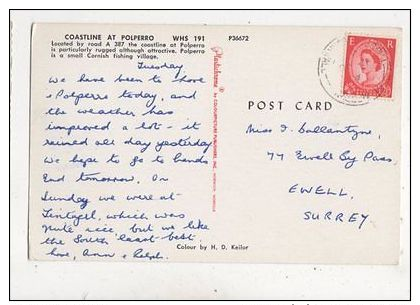 COASTLINE AT POLPERRO WHS 191
Located by road A 387 the coastline at Polperro
is particularly rugged although attractive. Polperro
is a small Cornish fishing village.
P36672
Tuesday
We have been to
& Polperro today, and
the weather has
improved a lot - it
rained all day yesterday
We hope to go to Lands
End tomorrow. On
Sunday we were at
Tintagel, which was
quite nice, but we like
the South coast best.
love, Ann & Ralph.
Colour by H. D. Keilor
Plastichrome
by COLOURPICTURE PUBLISHERS, INC.
POST CARD
E R
Miss J. Ballantyne,
77 Ewell By Pass,
EWELL,
SURREY